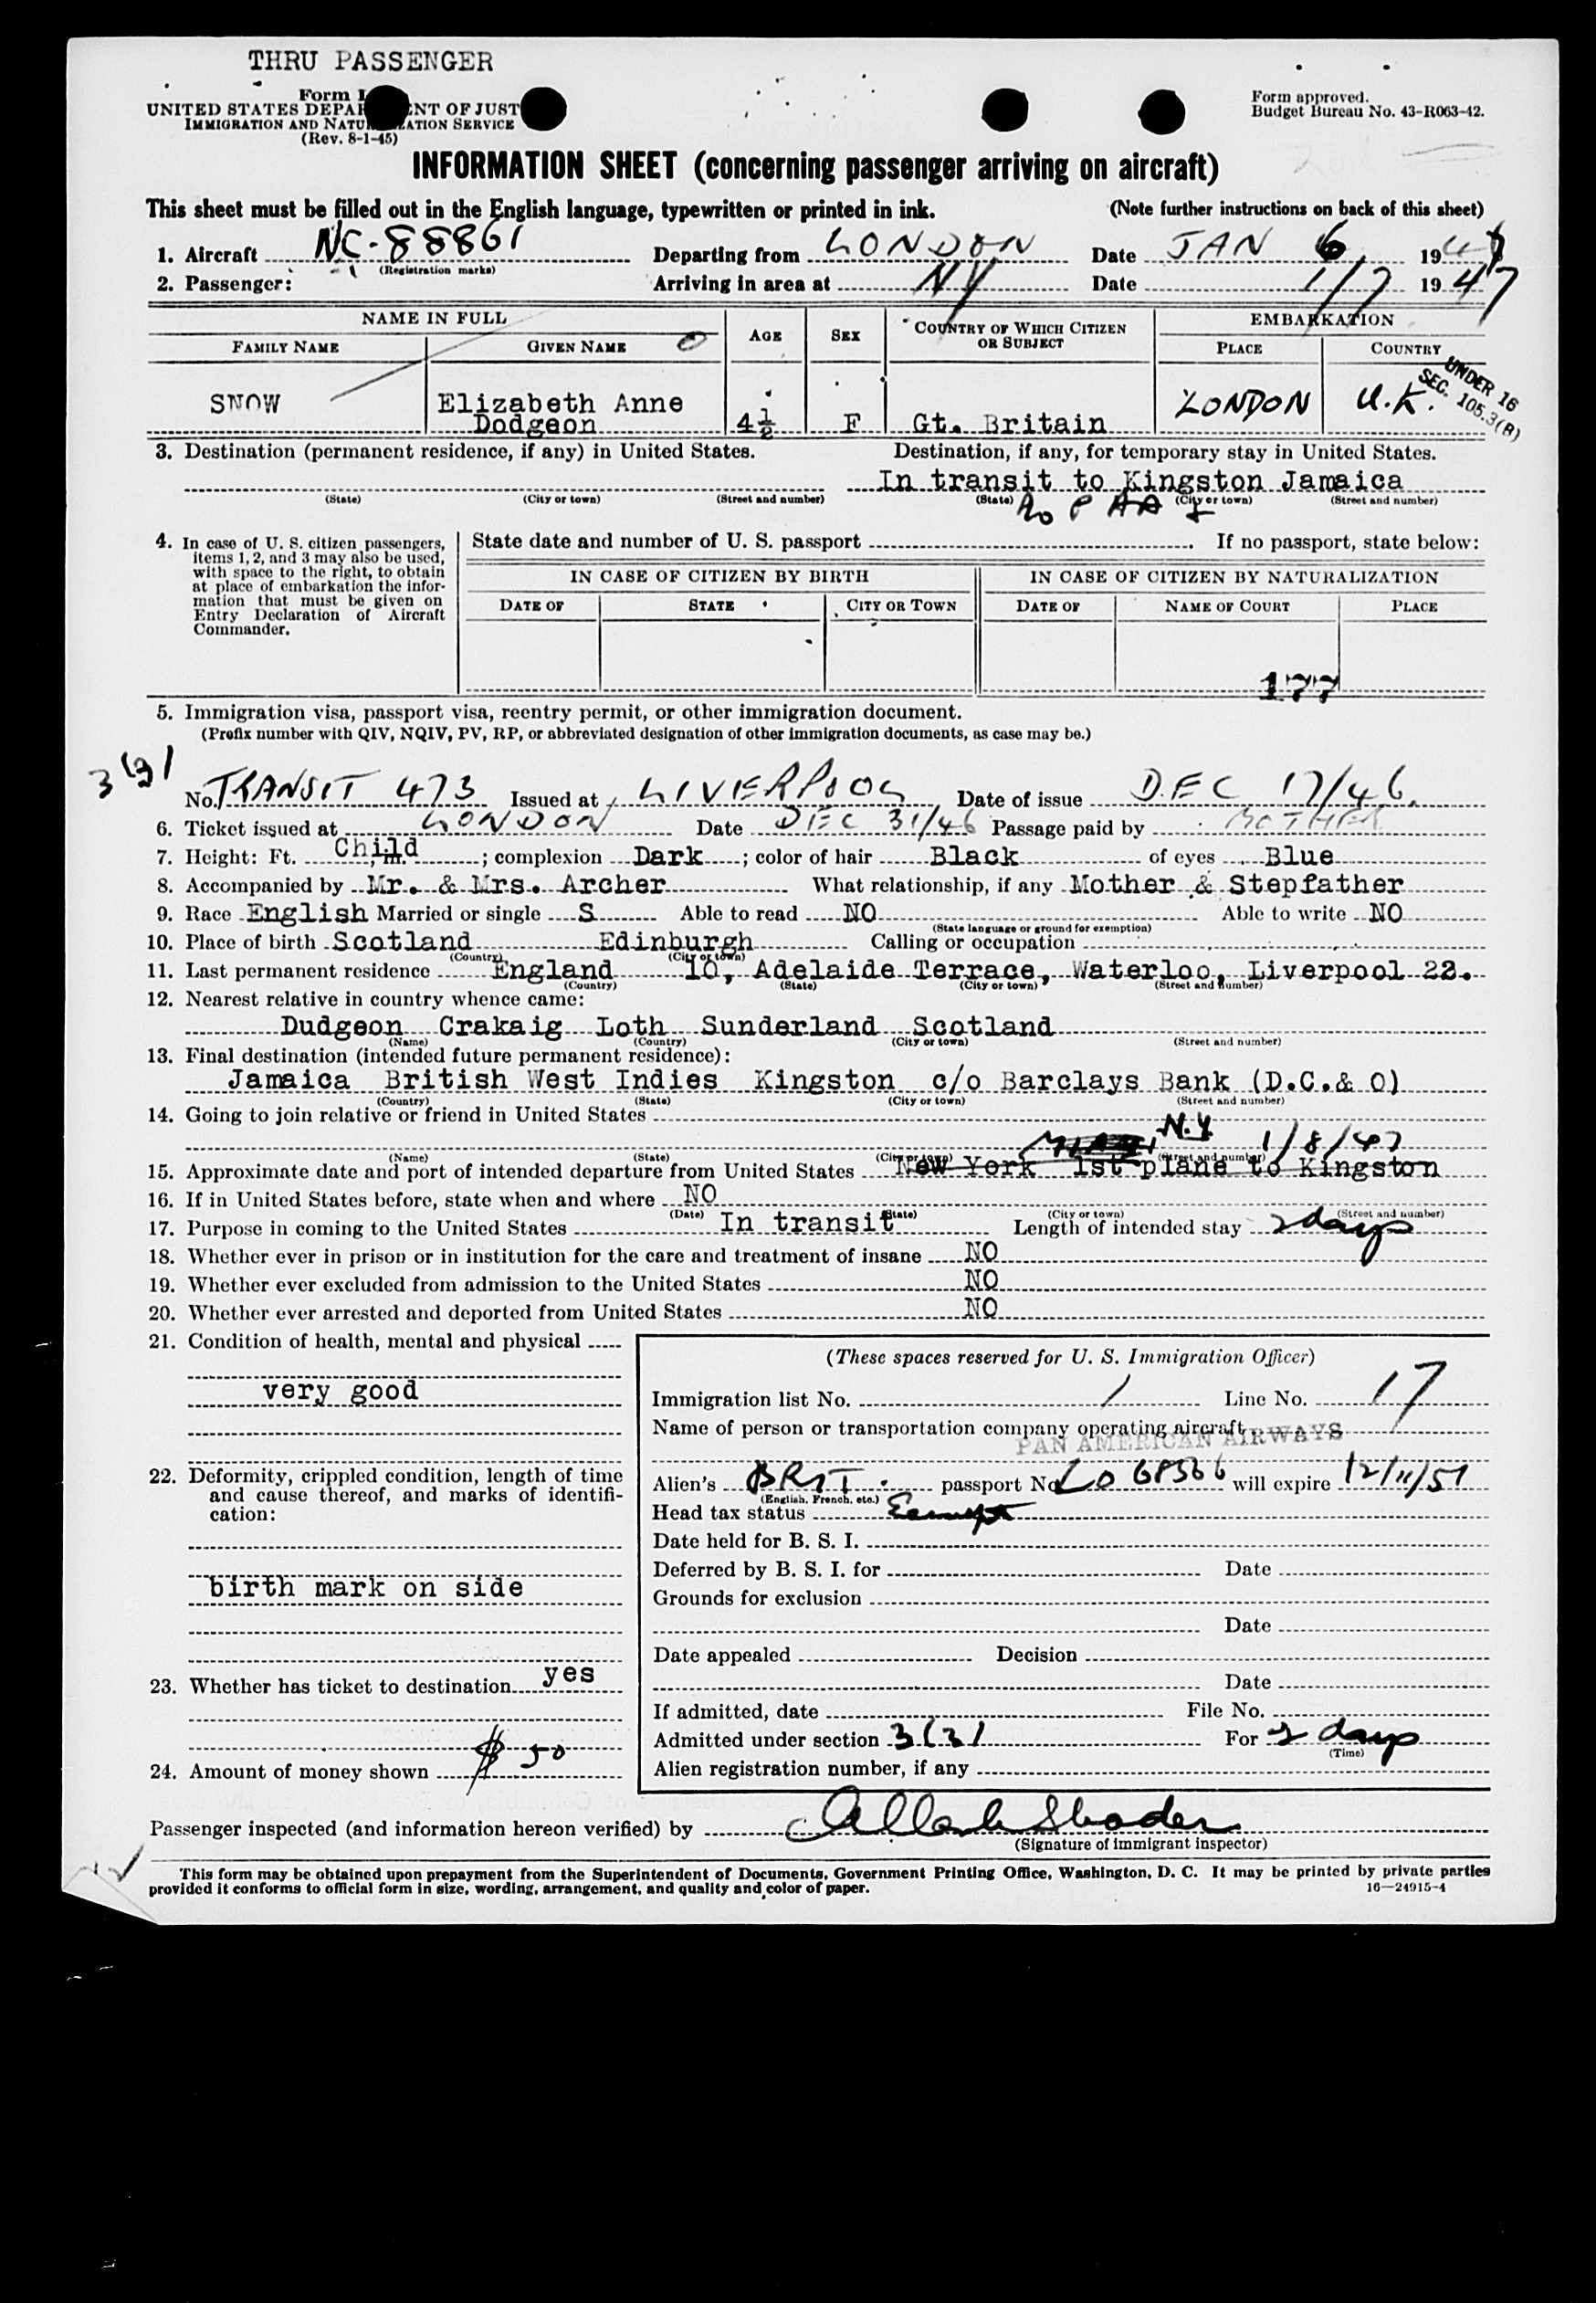 THRU PASSENGER
Form I
UNITED STATES DEPA NT OF JUST
IMMIGRATION AND NATU ATION SERVICE
(Rev. 8-1-45)
Form approved.
Budget Bureau No. 43-R063-42.
INFORMATION SHEET (concerning passenger arriving on aircraft)
This sheet must be filled out in the English language, typewritten or printed in ink. (Note further instructions on back of this sheet)
1. Aircraft NC-88861 Departing from LONDON Date JAN 6, 194
(Registration marks)
2. Passenger: Arriving in area at NY Date 1/7 1947
NAME IN FULL AGE SEX COUNTRY OF WHICH CITIZEN OR SUBJECT EMBARKATION
FAMILY NAME GIVEN NAME PLACE COUNTRY
UNDER 16
SEC. 105.3(B)
SNOW Elizabeth Anne LONDON U.K.
Dodgeon 4½ F Gt. Britain
3. Destination (permanent residence, if any) in United States. Destination, if any, for temporary stay in United States.
In transit to Kingston Jamaica
(State) (City or town) (Street and number) (State) (City or town) (Street and number)
4. In case of U. S. citizen passengers, items 1, 2, and 3 may also be used, with space to the right, to obtain at place of embarkation the information that must be given on Entry Declaration of Aircraft Commander.
State date and number of U. S. passport . If no passport, state below:
IN CASE OF CITIZEN BY BIRTH IN CASE OF CITIZEN BY NATURALIZATION
DATE OF STATE CITY OR TOWN DATE OF NAME OF COURT PLACE
177
5. Immigration visa, passport visa, reentry permit, or other immigration document.
(Prefix number with QIV, NQIV, PV, RP, or abbreviated designation of other immigration documents, as case may be.)
3(3)
No. TRANSIT 473 Issued at LIVERPOOL Date of issue DEC 17/46.
6. Ticket issued at LONDON Date DEC 31/46 Passage paid by MOTHER
7. Height: Ft. Child , in. ; complexion Dark ; color of hair Black of eyes Blue
8. Accompanied by Mr. & Mrs. Archer What relationship, if any Mother & Stepfather
9. Race English Married or single S Able to read NO Able to write NO
(State language or ground for exemption)
10. Place of birth Scotland Edinburgh Calling or occupation
(Country) (City or town)
11. Last permanent residence England 10, Adelaide Terrace, Waterloo, Liverpool 22.
(Country) (State) (City or town) (Street and number)
12. Nearest relative in country whence came:
Dudgeon Crakaig Loth Sunderland Scotland
(Name) (Country) (City or town) (Street and number)
13. Final destination (intended future permanent residence):
Jamaica British West Indies Kingston c/o Barclays Bank (D.C.& O)
(Country) (State) (City or town) (Street and number)
14. Going to join relative or friend in United States
N.Y. 1/8/47
(Name) (State) (City or town) (Street and number)
15. Approximate date and port of intended departure from United States New York 1st plane to Kingston
16. If in United States before, state when and where NO
(Date) (State) (City or town) (Street and number)
17. Purpose in coming to the United States In transit Length of intended stay 2 days
18. Whether ever in prison or in institution for the care and treatment of insane NO
19. Whether ever excluded from admission to the United States NO
20. Whether ever arrested and deported from United States NO
21. Condition of health, mental and physical
very good
22. Deformity, crippled condition, length of time and cause thereof, and marks of identification:
birth mark on side
23. Whether has ticket to destination yes
24. Amount of money shown $ 50
(These spaces reserved for U. S. Immigration Officer)
Immigration list No. 1 Line No. 17
Name of person or transportation company operating aircraft
PAN AMERICAN AIRWAYS
Alien's BRIT. passport No. LO 68566 will expire 12/11/51
(English, French, etc.)
Head tax status Exempt
Date held for B. S. I.
Deferred by B. S. I. for Date
Grounds for exclusion
Date
Date appealed Decision
Date
If admitted, date File No.
Admitted under section 3(3) For 2 days
(Time)
Alien registration number, if any
Passenger inspected (and information hereon verified) by
(Signature of immigrant inspector)
This form may be obtained upon prepayment from the Superintendent of Documents, Government Printing Office, Washington, D. C. It may be printed by private parties
provided it conforms to official form in size, wording, arrangement, and quality and color of paper. 16—24915-4